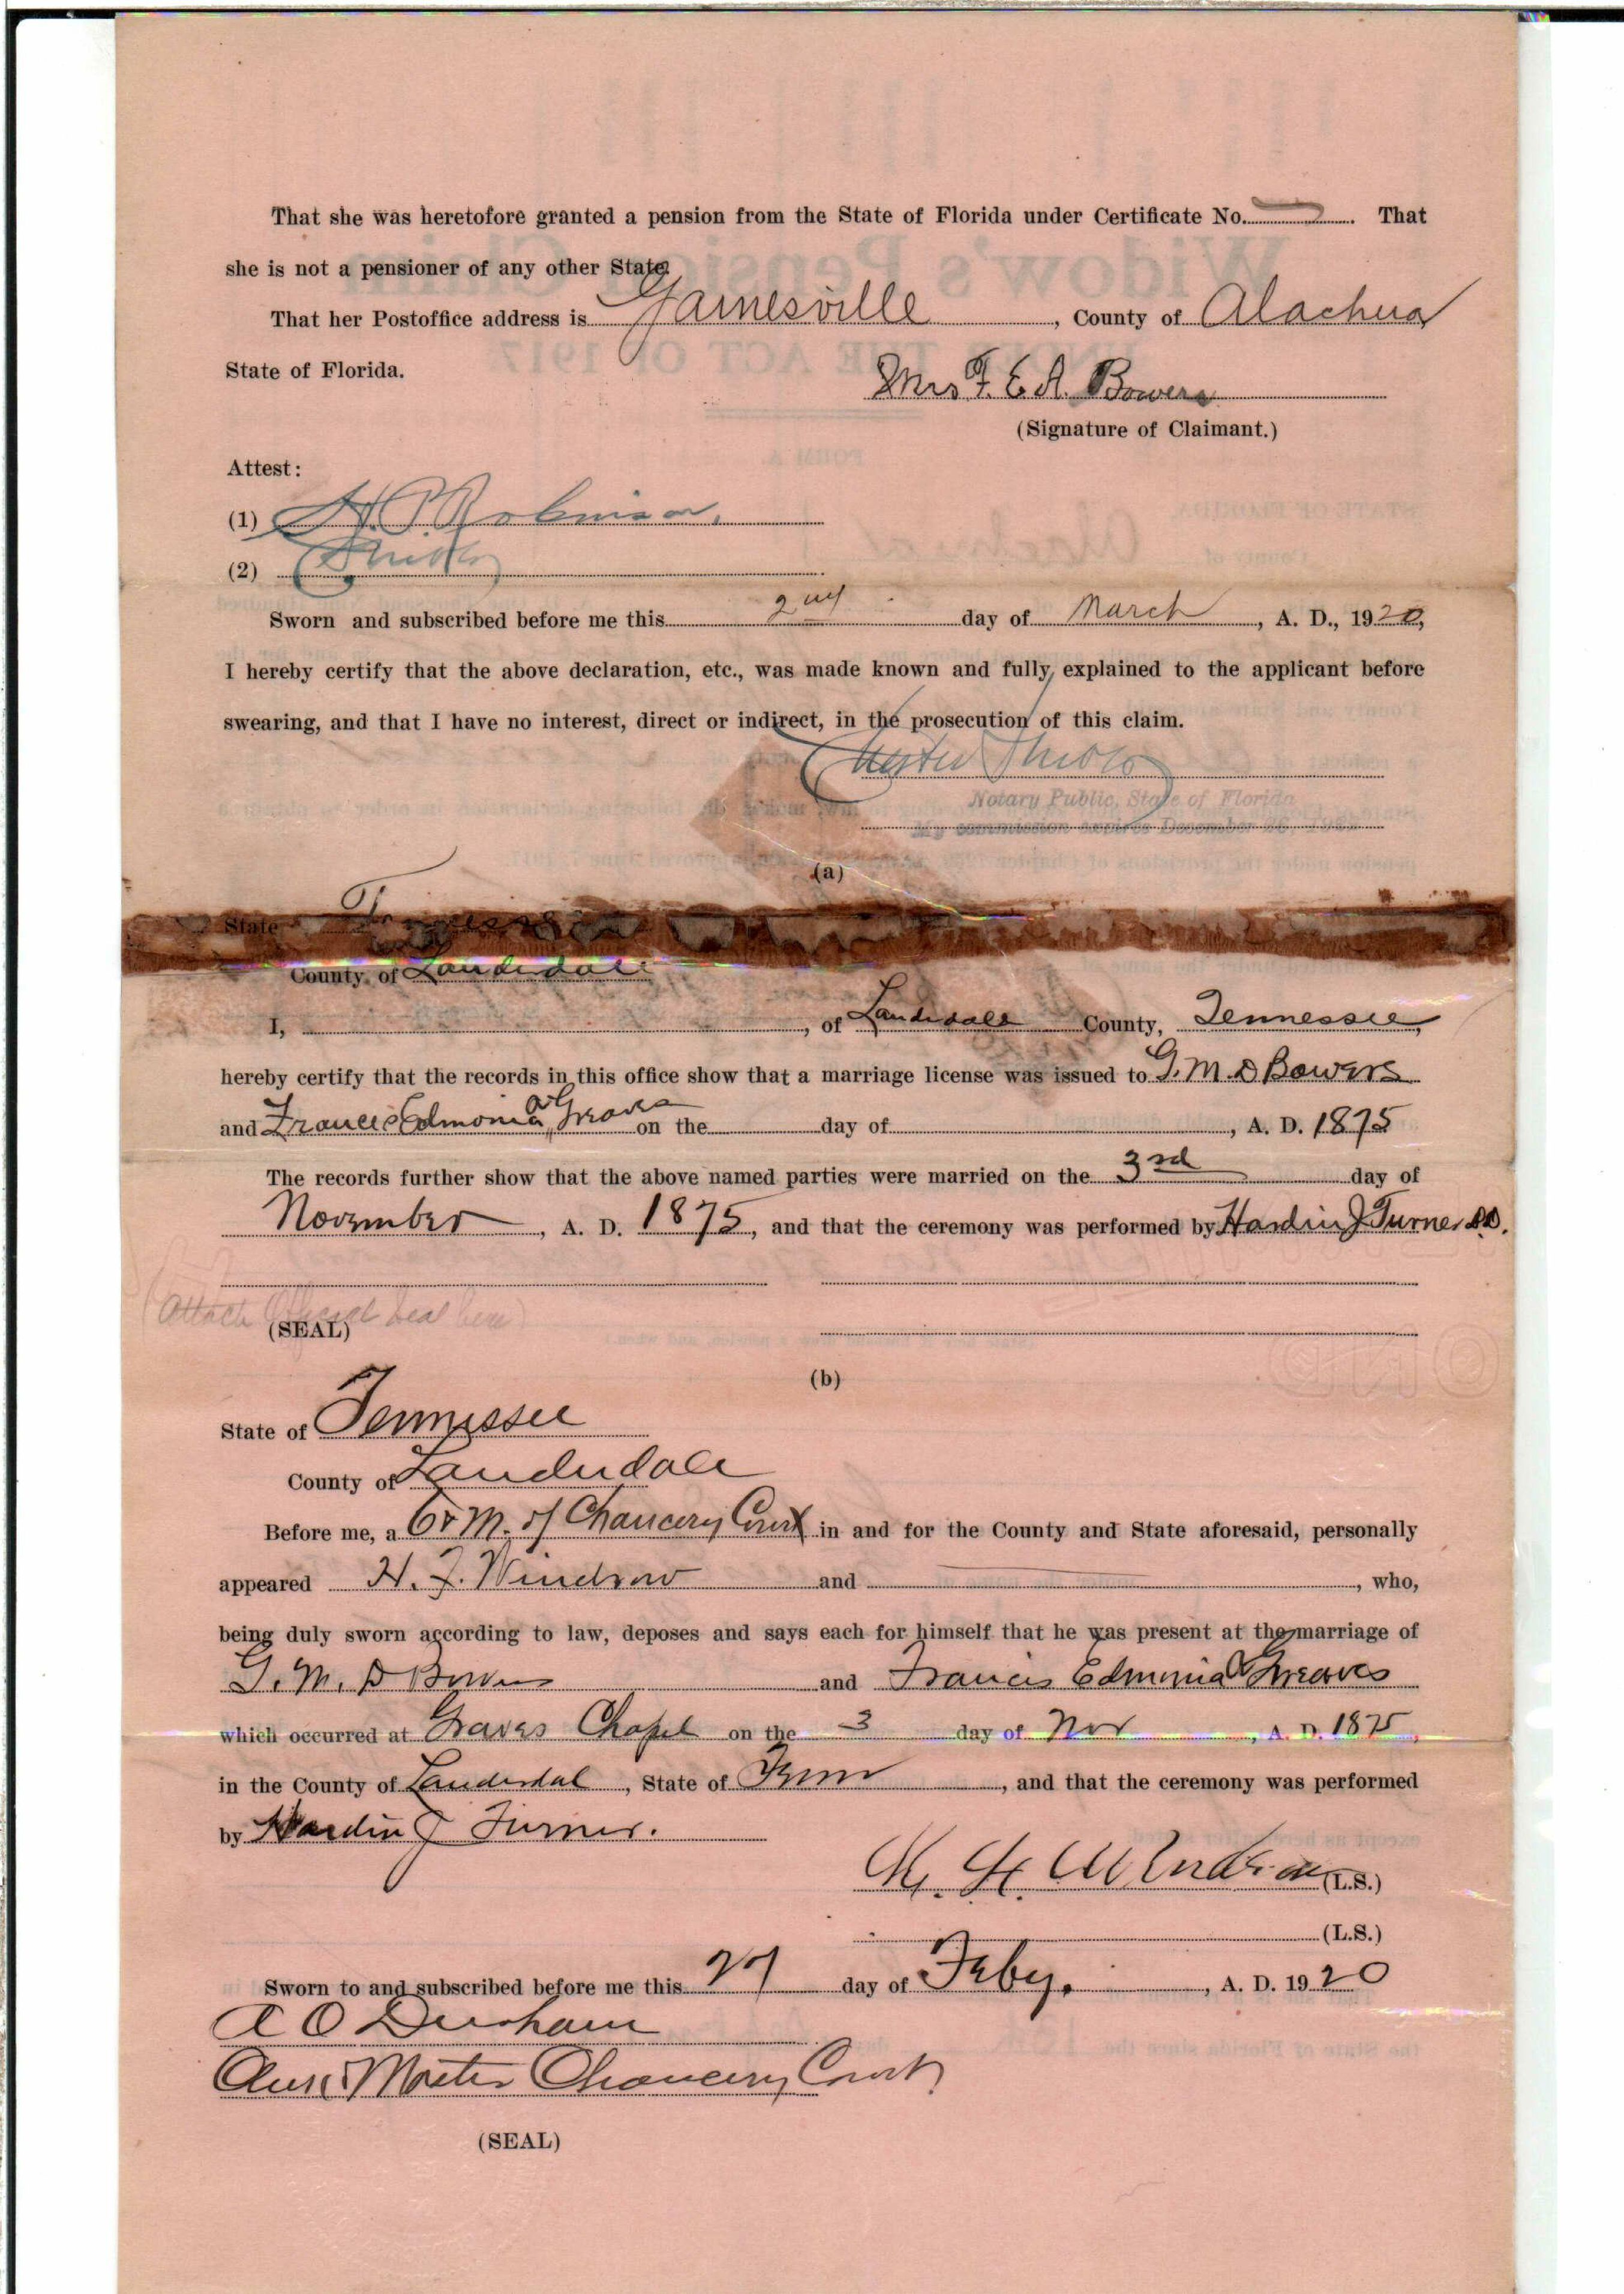 That she was heretofore granted a pension from the State of Florida under Certificate No. That
she is not a pensioner of any other State.
That her Postoffice address is Gainesville, County of Alachua
State of Florida.
Mrs F. E. A. Bowers
(Signature of Claimant.)
Attest:
(1) H. P. Robinson.
(2)
Sworn and subscribed before me this 2nd day of March, A. D., 1920,
I hereby certify that the above declaration, etc., was made known and fully explained to the applicant before
swearing, and that I have no interest, direct or indirect, in the prosecution of this claim.
Notary Public, State of Florida
My commission expires December
(a)
State Tennessee
County of Lauderdale
I, , of Lauderdale County, Tennessee,
hereby certify that the records in this office show that a marriage license was issued to G. M. D Bowers
and Frances Edmonia A Greaves on the day of , A. D. 1875
The records further show that the above named parties were married on the 3rd day of
November, A. D. 1875, and that the ceremony was performed by Hardin J Turner D.D.
(Attach Official Seal here)
(SEAL)
(b)
State of Tennessee
County of Lauderdale
Before me, a C & M. of Chancery Court in and for the County and State aforesaid, personally
appeared H. F. Windrow and , who,
being duly sworn according to law, deposes and says each for himself that he was present at the marriage of
G. M. D Bowers and Francis Edmonia A Greaves
which occurred at Graves Chapel on the 3 day of Nov, A. D. 1875,
in the County of Lauderdal, State of Tenn, and that the ceremony was performed
by Hardin J Turner.
Windrow (L.S.)
(L.S.)
Sworn to and subscribed before me this 27 day of Feby., A. D. 1920
A O Durham
Clerk & Master Chancery Court
(SEAL)